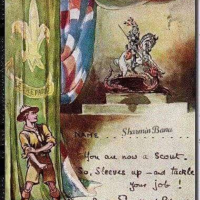 BE PREPARED
NAME Sharmin Banu
You are now a Scout.
So, Sleeves up — and tackle
your job!